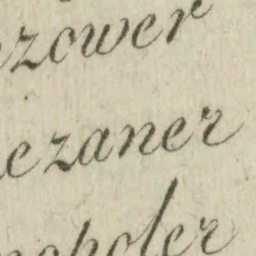 zower
ezaner
nopoler